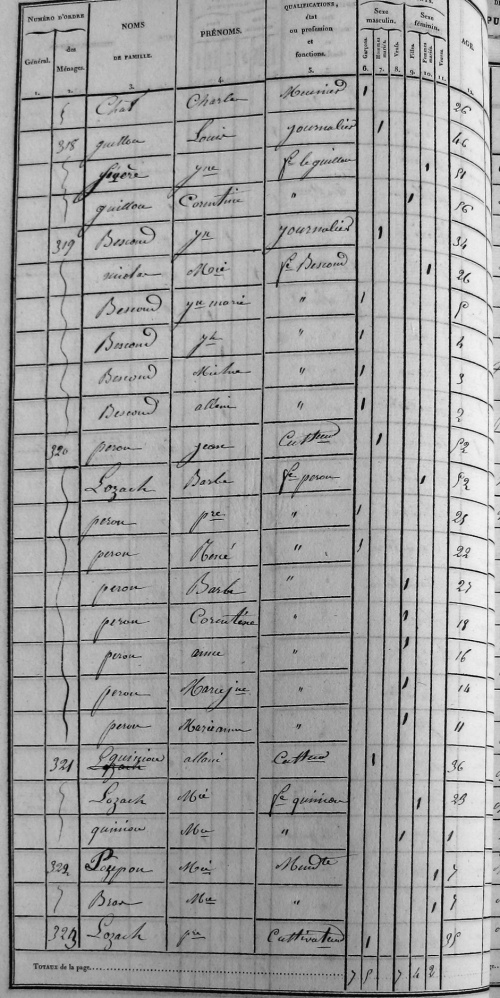 NUMÉRO D'ORDRE | NOMS DE FAMILLE. | PRÉNOMS. | QUALIFICATIONS, état ou profession et fonctions. | Sexe masculin. | Sexe féminin. | AGE.
Général. | des Ménages. | Garçons. | Hommes mariés. | Veufs. | Filles. | Femmes mariées. | Veuves.
1. | 2. | 3. | 4. | 5. | 6. | 7. | 8. | 9. | 10. | 11. | 12.
Chat | Charles | Meunier | 1 | 26
318 | guillou | Louis | journalier | 1 | 46
yne | fe le guillou | 1 | 51
guillou | Corentine | " | 1 | 16
319 | Bescond | yn | journalier | 1 | 34
nicolas | Marie | fe Bescond | 1 | 26
Bescond | yn marie | " | 1 | 5
Bescond | yn | " | 1 | 4
Bescond | " | 1 | 3
Bescond | allain | " | 1 | 2
320 | peron | jean | Cultteur | 1 | 52
Lozach | Barbe | fe peron | 1 | 52
peron | pre | " | 1 | 25
peron | René | " | 1 | 22
peron | Barbe | " | 1 | 27
peron | Corentine | " | 1 | 18
peron | anne | " | 1 | 16
peron | Marie jne | " | 1 | 14
peron | Marie anne | " | 1 | 11
321 | quiniou | allain | Cultteur | 1 | 36
Lozach | Mie | fe quiniou | 1 | 23
quiniou | Mie | " | 1 | 1
322 | Poupon | Mie | Mendte | 1 | 7
Mie | " | 1
323 | Lozach | pre | Cultivateur | 1
TOTAUX de la page | 7 | 5 | 7 | 4 | 2